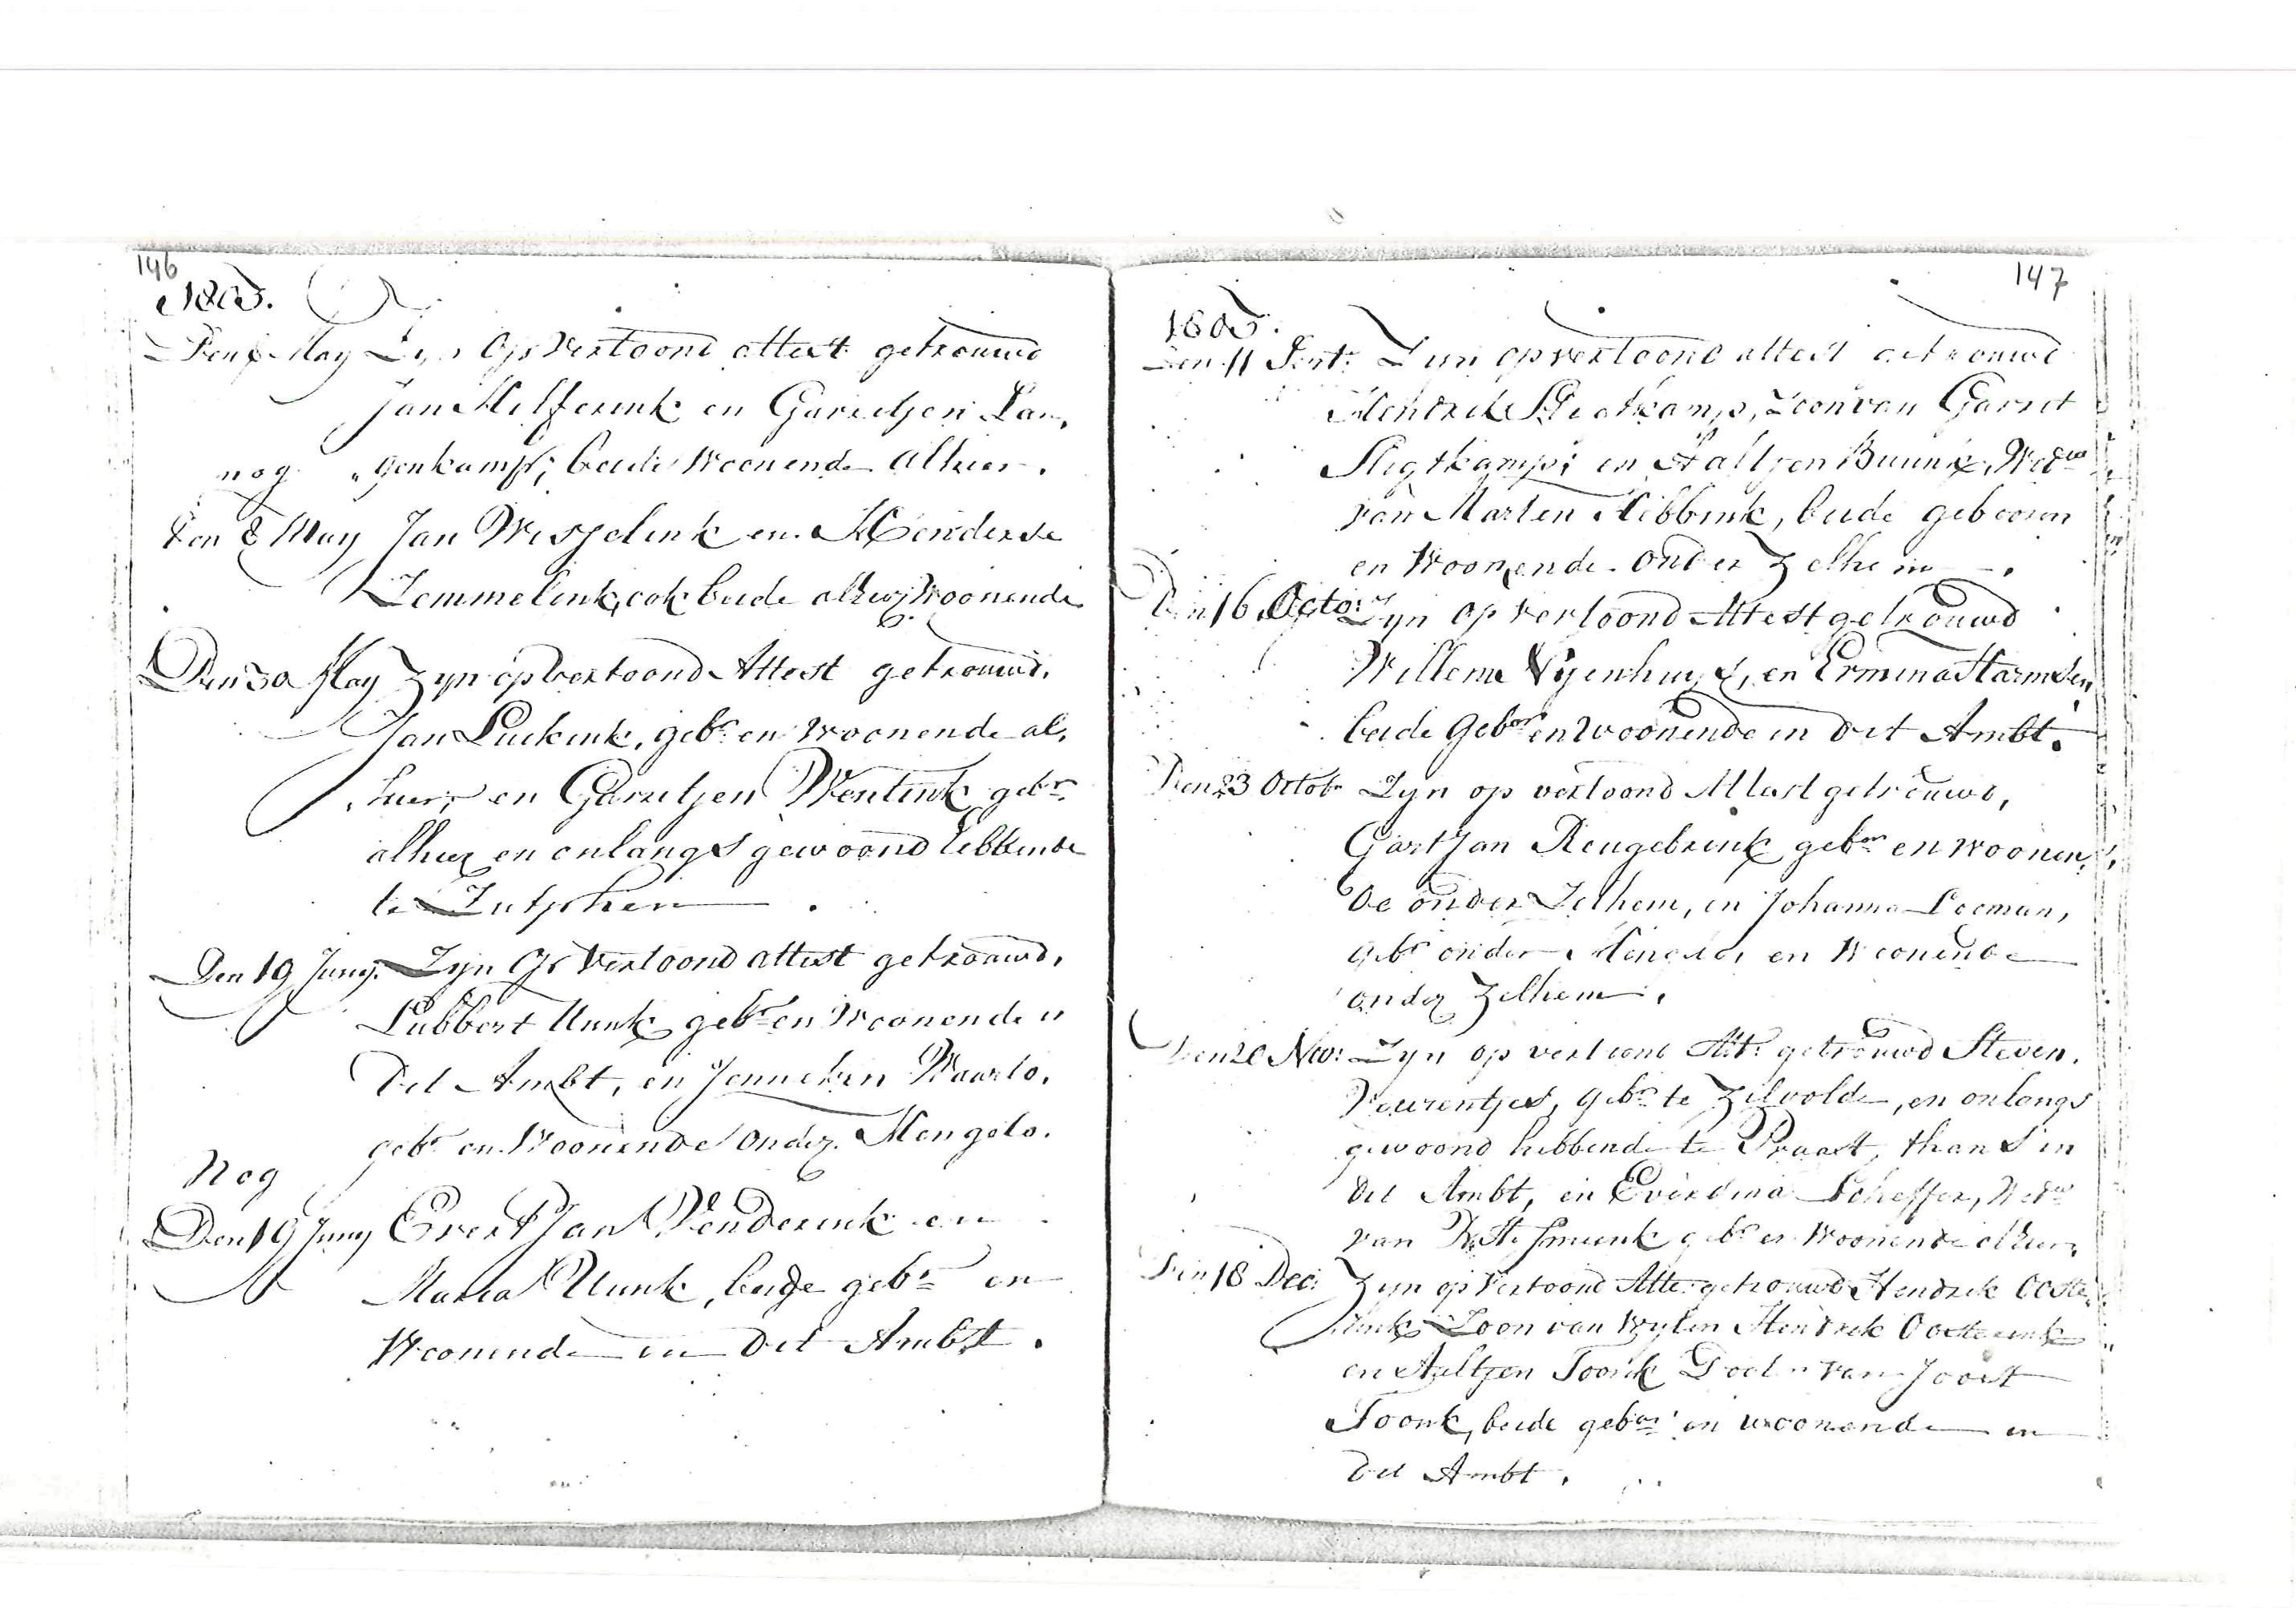 146
1803.
Den 8 May Zyn op vertoond attest getrouwd
Jan Hilferink en Garritjen Lan,
nog „genkamp; beide woonende alhier.
den 8 May Jan Wisselink en Henders
Zemmelink, ook beide alhier woonende
Den 30 May Zyn op vertoond Attest getrouwd,
Jan Luikink, gebr en woonende al,
hier, en Garritjen Wentink gebr
alhier en onlangs gewoond hebbende
te Zutphen.
Den 19 Juny. Zyn op vertoond attest getrouwd,
Lubbert Uunk gebr en woonende in
Dit Ambt, en Jenneken Waarlo,
gebr en woonende onder Hengelo.
Nog
Den 19 Juny Evert Jan Wenderink en
Maria Uunk, beide gebr en
Woonende in Dit Ambt.
147
1803.
Den 11 Sept: Zyn op vertoond attest getrouwd
Hendrik Sligtkamp, Zoon van Garrit
Sligtkamp; en Aaltjen Buunk, Wedw
van Marten Hibbink, beide gebooren
en Woonende onder Zelhem.
Den 16 Octo: Zyn op vertoond Attest getrouwd
Willem Nyenhuys, en Ermina Harmsen,
beide gebor en woonende in dit Ambt.
Den 23 Octobr Zyn op vertoond Attest getrouwd,
Gart Jan Reugebrink gebor en woonen,
de onder Zelhem, en Johanna Looman,
gebr onder Hengelo, en Woonende
onder Zelhem.
Den 20 Nov: Zyn op vertoond Att: getrouwd Steven
Veurentjes, gebr te Zilvolde, en onlangs
gewoond hebbende te Praast, thans in
dit Ambt, en Everdina Scheffer, Wedw
van Smeenk gebr en Woonende alhier,
Den 18 Dec: Zyn op vertoond Atte: getrouwd Hendrik Ooste,
rink, Zoon van Wylen Hendrik Oosterink
en Aaltjen Toonk Docht van Joost
Toonk, beide gebor en woonende in
dit Ambt.